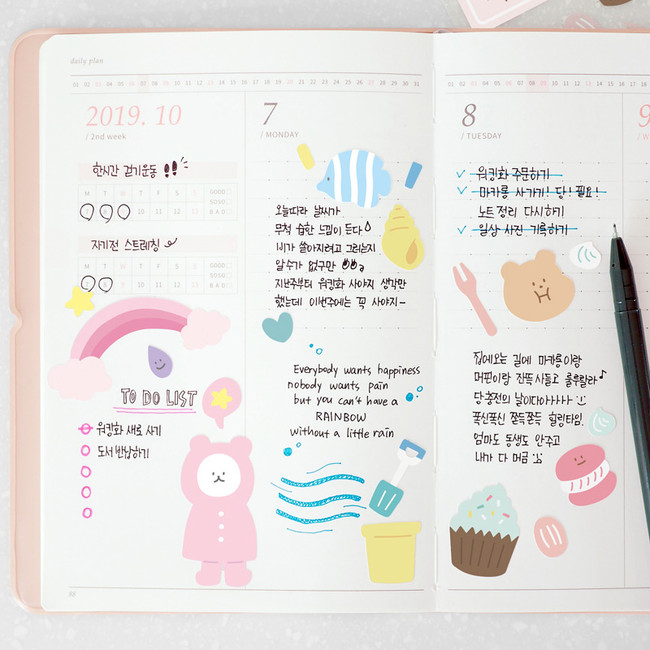 daily plan
01 02 03 04 05 06 07 08 09 10 11 12 13 14 15 16 17 18 19 20 21 22 23 24 25 26 27 28 29 30 31
2019. 10
/ 2nd week
한시간 걷기운동
M T W T F S S GOOD
7 8 9 10 11 12 13 SOSO
BAD
자기전 스트레칭
M T W T F S S GOOD
7 8 9 10 11 12 13 SOSO
BAD
TO DO LIST
워킹화 새로 사기
도서 반납하기
88
7
/ MONDAY
오늘따라 날씨가
무척 습한 느낌이 든다
비가 쏟아지려고 그러는지
알수가 없구만
지난주부터 워킹화 사야지 생각만
했는데 이번주에는 꼭 사야지~
Everybody wants happiness
nobody wants pain
but you can't have a
RAINBOW
without a little rain
01 02 03 04 05 06 07 08 09
8
/ TUESDAY
워킹화 주문하기
마카롱 사가기! 당! 필요!
노트정리 다시하기
일상 사진 기록하기
집에오는 길에 마카롱이랑
머핀이랑 잔뜩 사들고 룰루랄라♪
당충전의 날이다아아아아
폭신폭신 쫀득쫀득 힐링타임.
엄마도 동생도 안주고
내가 다 먹음
9
/ W